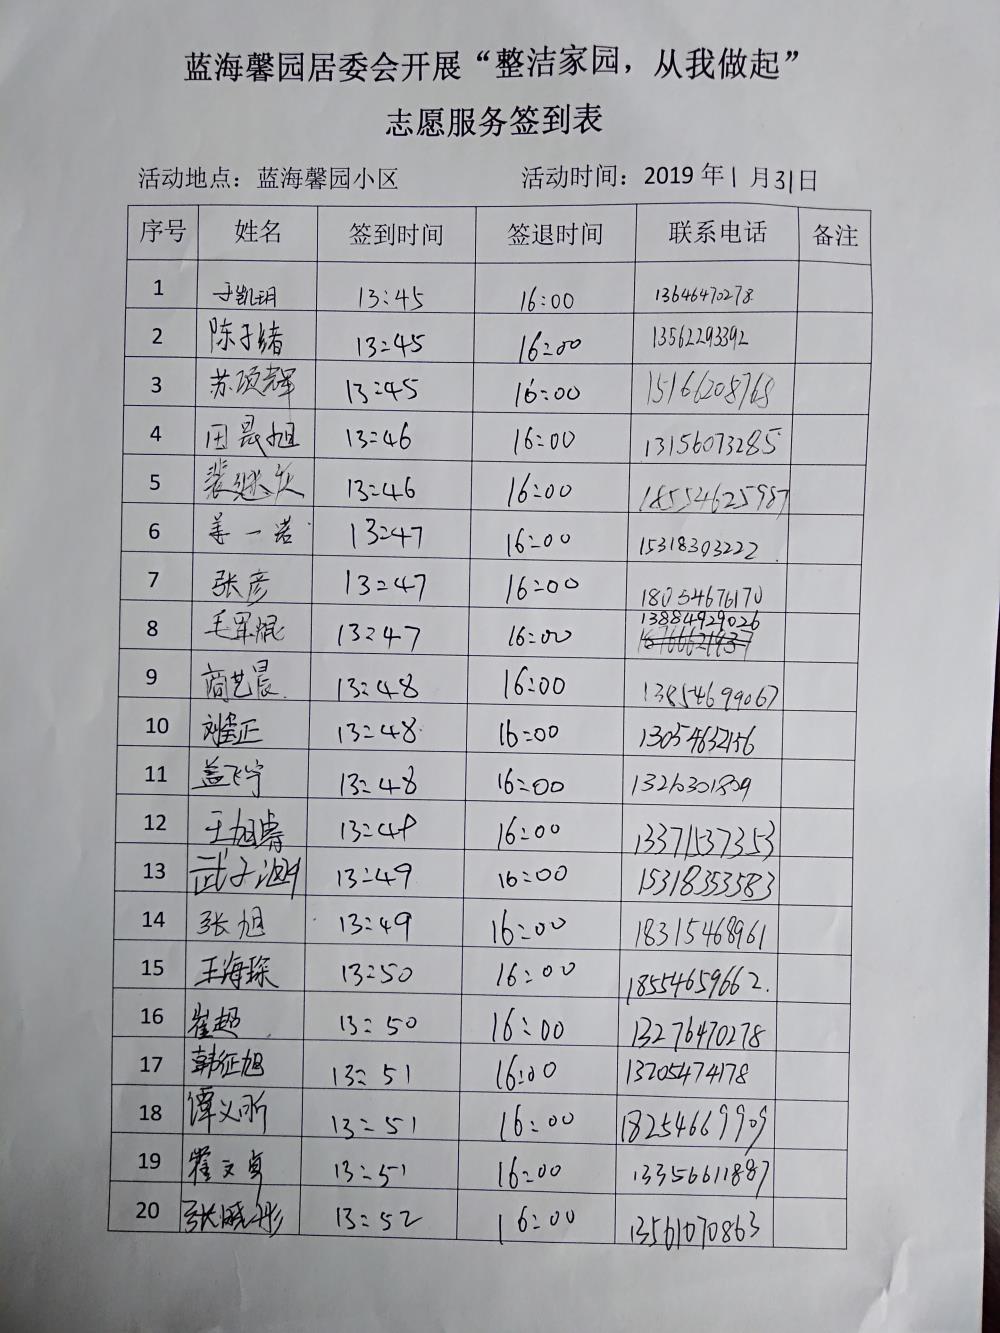 蓝海馨园居委会开展“整洁家园，从我做起”
志愿服务签到表
活动地点：蓝海馨园小区 活动时间：2019年1月31日
序号 姓名 签到时间 签退时间 联系电话 备注
1 于凯玥 13:45 16:00 13646470278
2 陈子绪 13:45 16:00 13562293392
3 苏硕辉 13:45 16:00 15166208768
4 田晨旭 13:46 16:00 13156073285
5 13:46 16:00 18554625987
6 姜一诺 13:47 16:00 15318303222
7 张彦 13:47 16:00 18054676170
8 13:47 16:00 13884929026
9 商艺晨 13:48 16:00 13854699067
10 13:48 16:00 13054632156
11 盖飞宇 13:48 16:00
12 王旭涛 13:48 16:00 13371537353
13 13:49 16:00 15318353583
14 张旭 13:49 16:00 18315468961
15 王海琛 13:50 16:00 18554659662.
16 崔超 13:50 16:00 13276470278
17 韩征旭 13:51 16:00 13205474178
18 谭义昕 13:51 16:00 18254669909
19 翟文卓 13:51 16:00 13356611887
20 张晓彤 13:52 16:00 13561070863